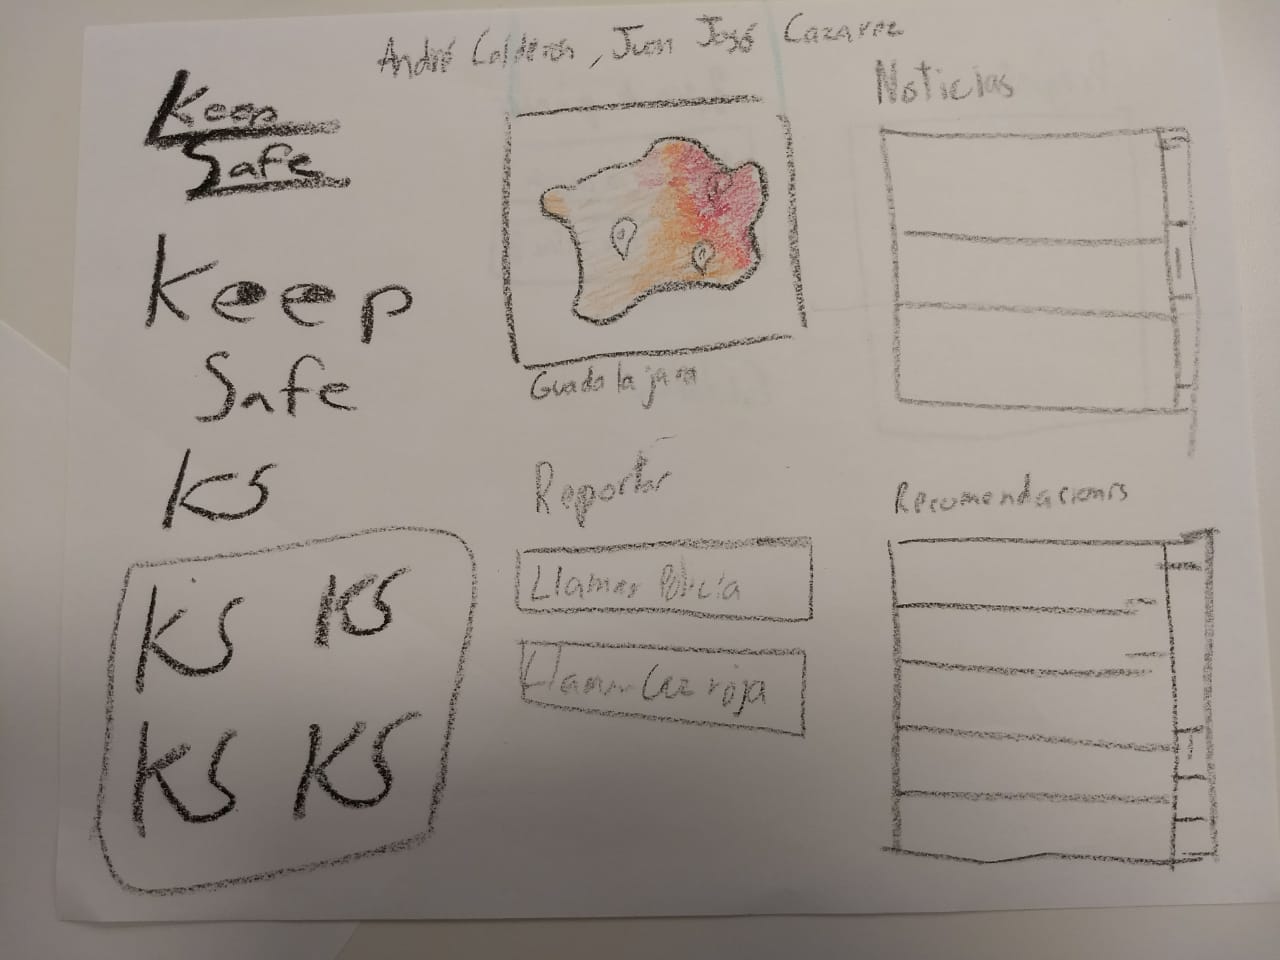 André Calderón, Juan José Cazarez
Keep
Safe
Keep
Safe
KS
KS KS
KS KS
Guadalajara
Reportar
Llamar Policía
Llamar Cruz roja
Noticias
Recomendaciones